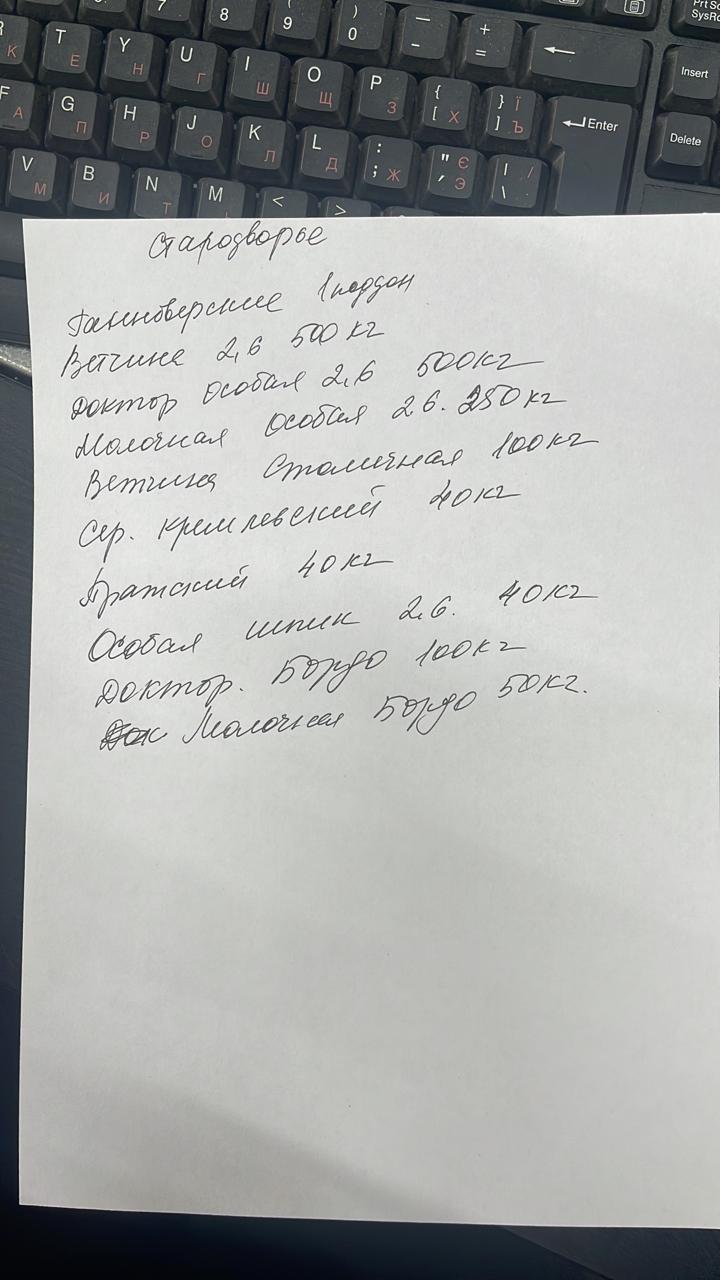 7 8 ( 9 ) 0 — - + = Prt Sc SysRq
T Е Y Н U Г I Ш O Щ P З { [ Х } ] Ї Ъ Insert
F А G П H Р J О K Л L Д : ; Ж " ' Є Э | \ / Enter Delete
V М B И N Т M < >
Стародворье
Ганноверские 1 поддон
Ветчина 2,6 500 кг
Доктор особая 2,6 500кг
Молочная особая 2.6. 250 кг
Ветчина Столичная 100кг
Сер. Кремлевский 40кг
Пражский 40 кг
Особая шпик 2,6. 40кг
Доктор. Бордо 100кг
Молочная Бордо 50кг.